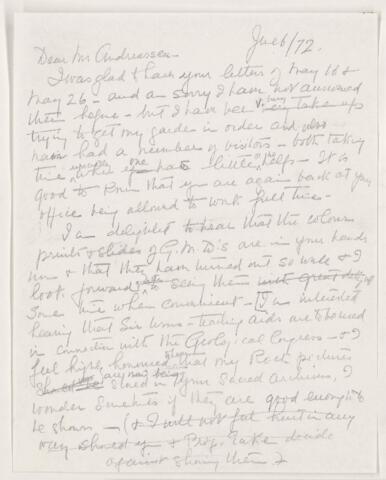 June 6/72.
Dear Mr Andreassen -
I was glad to have your letters of May 16 &
May 26 - and am sorry I have not answered
them before - but I have been v. busy
trying to get my garden in order and also
have had a number of visitors - both taking
time when one has little help - It is
good to know that you are again back at your
office being allowed to work full time -
I am delighted to hear that the colour
prints & slides of G. M. D's are in your hands
now & that they have turned out so well & I
look forward to seeing them with great delight
some time when convenient - I am interested
hearing that Sir Wms - teaching aids are to be used
in connection with the Geological Congress - & I
feel highly honoured that my Rock pictures
are being stored in your Sacred archives, I
wonder sometimes if they are good enough to
be shown - (& I will not feel hurt in any
way should you & Prof. take decide
against showing them)